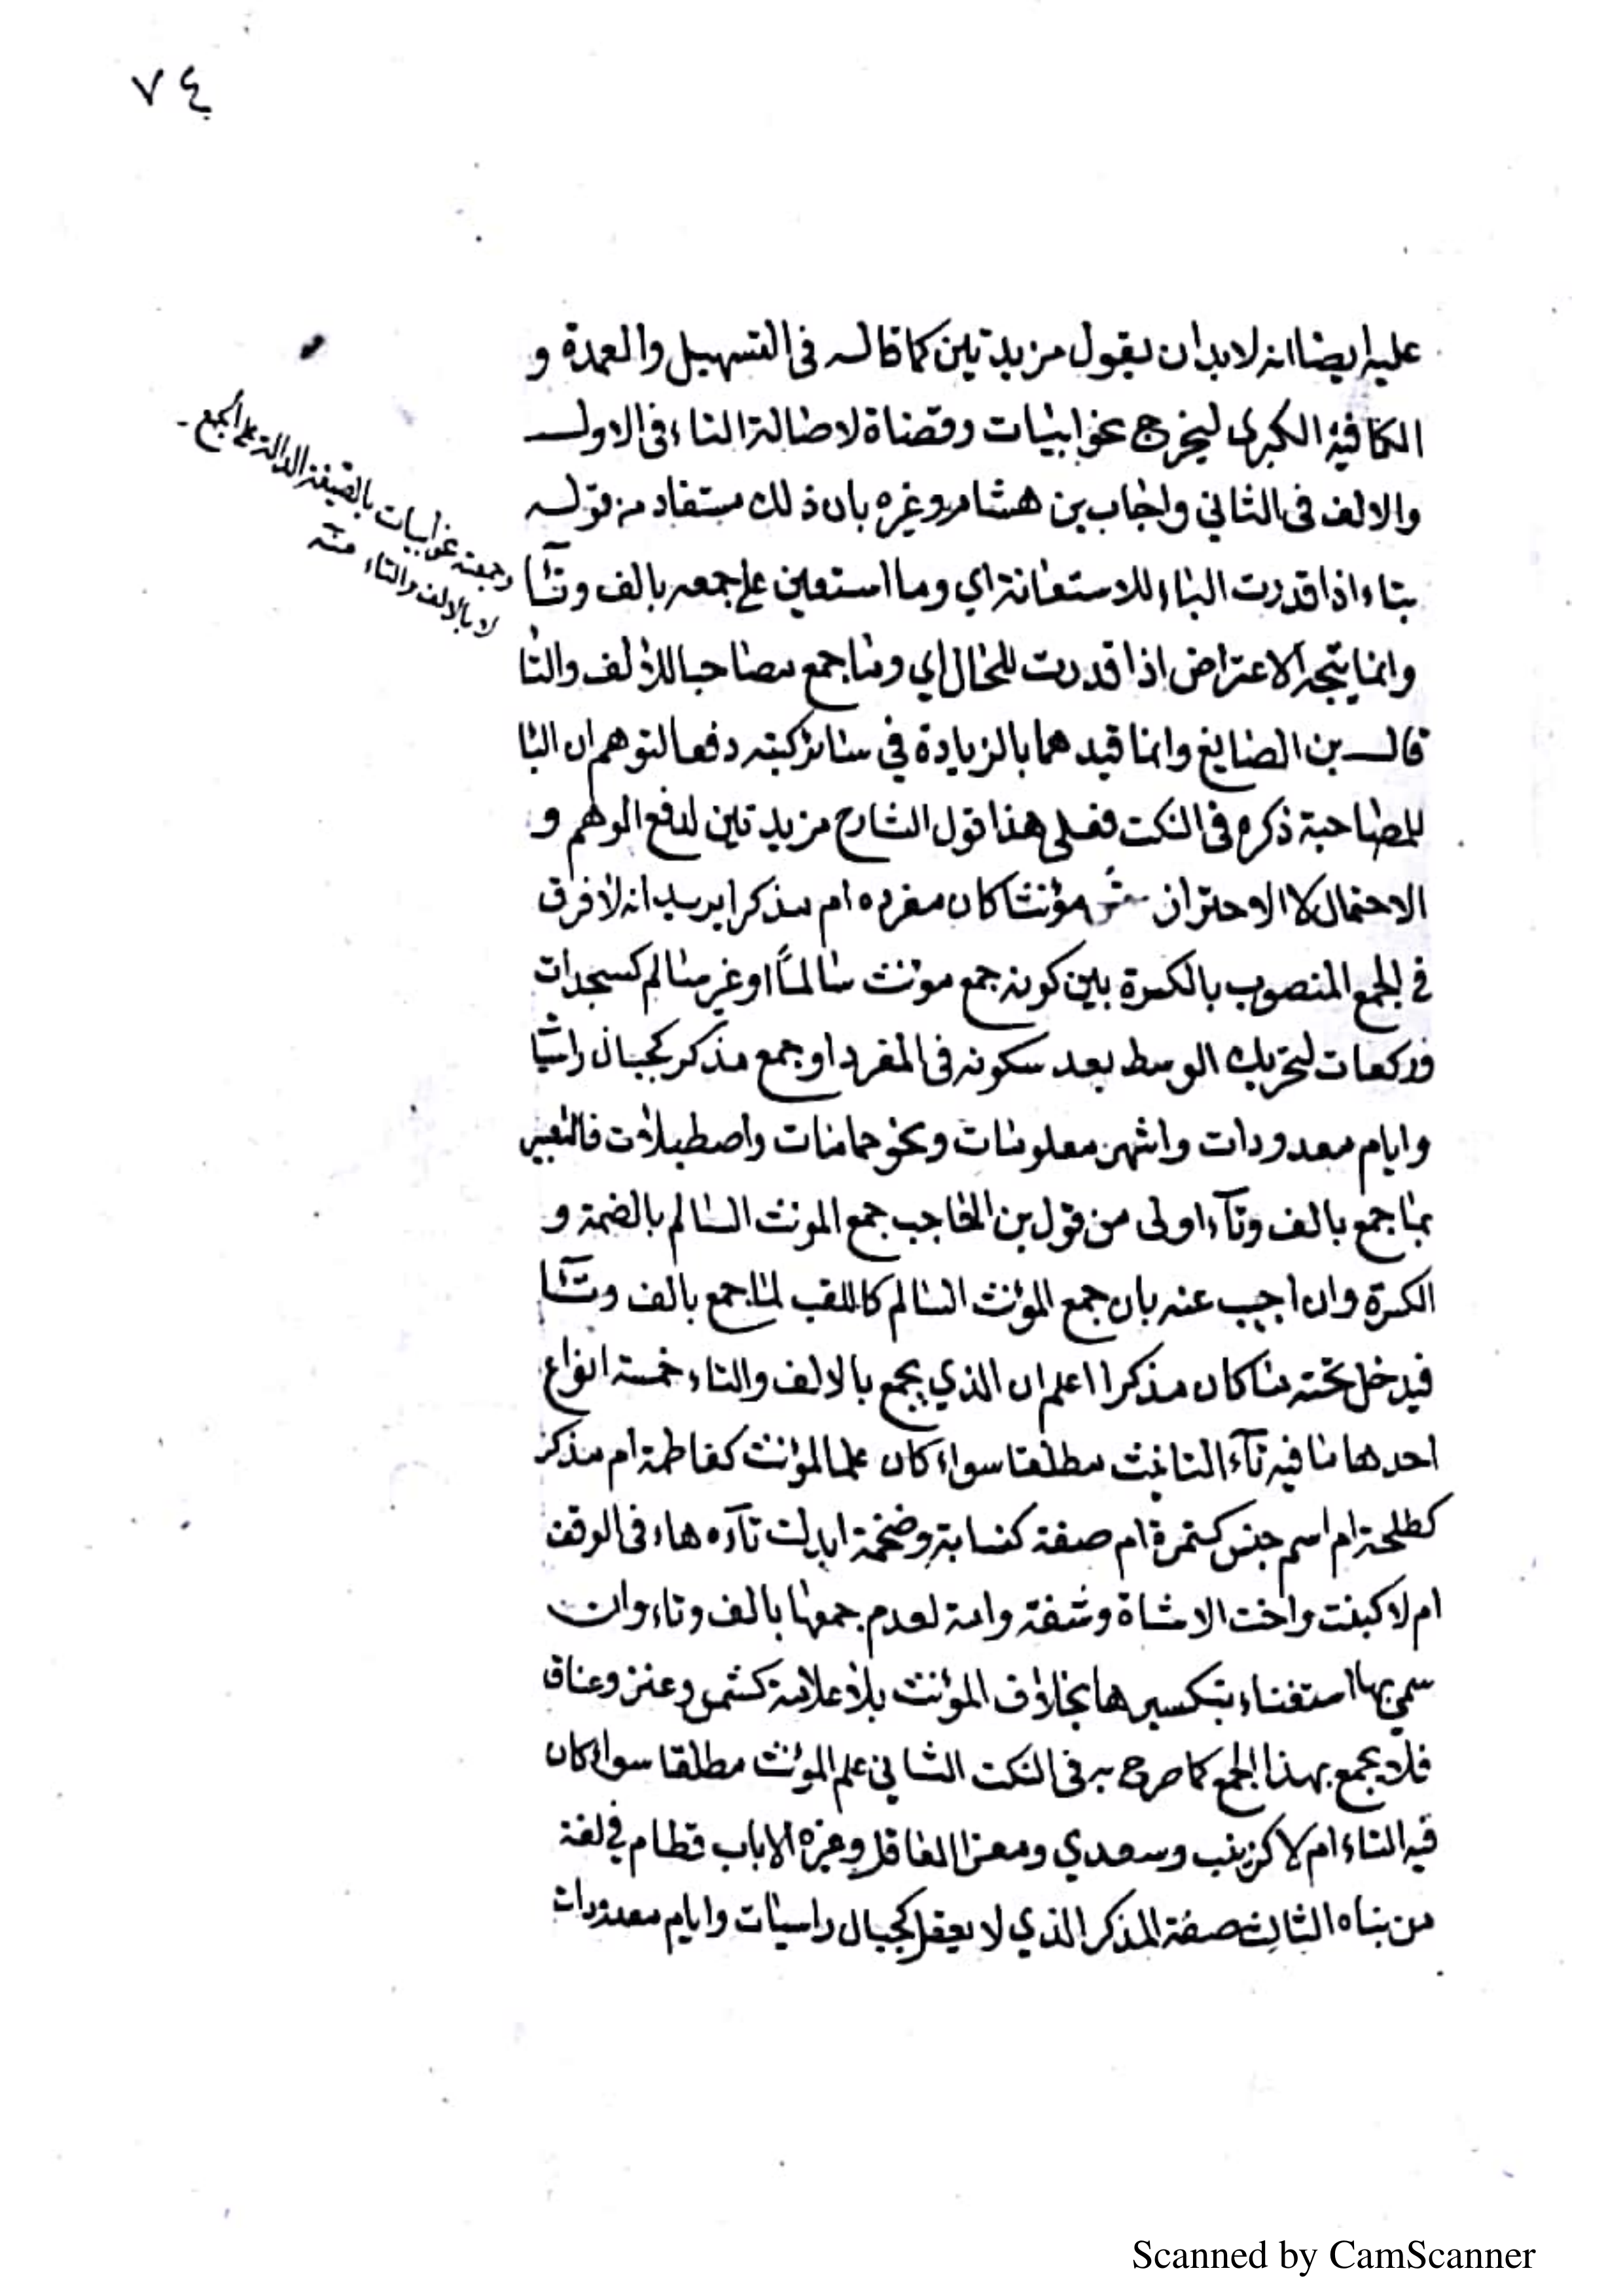 ٧٤
عليه ايضا انه لا بد ان يقول مزيدتين كما قاله فى التسهيل والعمدة و
الكافية الكبرى ليخرج نحو ابيات وقضاة لاصالة التاء فى الاول
والالف فى الثاني واجاب بن هشام وغيره بان ذلك مستفاد من قوله
بتاء اذا قدرت الباء للاستعانة اي وما استعين على جمعه بالف وتآ
وجمعية نحو ابيات بالصيغة الدالة على الجمع
لا بالالف والتاء منه
وانما يتجه الاعتراض اذا قدرت للحال اي وما جمع مصاحبا للالف والتا
قال بن الصايغ وانما قيدهما بالزيادة في سائر كتبه دفعا لتوهم ان البا
للمصاحبة ذكره فى النكت فعلى هذا قول الشارح مزيدتين لدفع الوهم و
الاحتمال لا الاحتراز مؤنثا كان مفرده ام مذكرا يريد انه لا فرق
في الجمع المنصوب بالكسرة بين كونه جمع مونث سالماً او غير سالم كسجدات
وركعات لتحريك الوسط بعد سكونه فى المفرد او جمع مذكر كجبال راسيا
وايام معدودات واشهر معلومات ونحو حمامات واصطبلات فالتعبير
بما جمع بالف وتآء اولى من قول بن الحاجب جمع المونث السالم بالضمة و
الكسرة وان اجيب عنه بان جمع المؤنث السالم كاللقب لما جمع بالف وتآ
فيدخل تحته ما كان مذكرا اعلم ان الذي يجمع بالالف والتاء خمسة انواع
احدها ما فيه تآء التانيث مطلقا سواء كان علما لمؤنث كفاطمة ام مذكر
كطلحة ام اسم جنس كتمرة ام صفة كنسابة وضخمة ابدلت تآؤه هاء فى الوقف
ام لا كبنت واخت الا شاة وشفة وامة لعدم جمعها بالف وتاء وان
سمي بها استغناء بتكسيرها بخلاف المؤنث بلا علامة كشمس وعنز وعناق
فلا يجمع بهذا الجمع كما صرح به فى النكت الثاني علم المؤنث مطلقا سواء كان
فيه التاء ام لا كزينب وسعدي العاقل وغيره الا باب قطام في لغة
من بناه الثالث صفة المذكر الذي لا يعقل كجبال راسيات وايام معدودات
Scanned by CamScanner